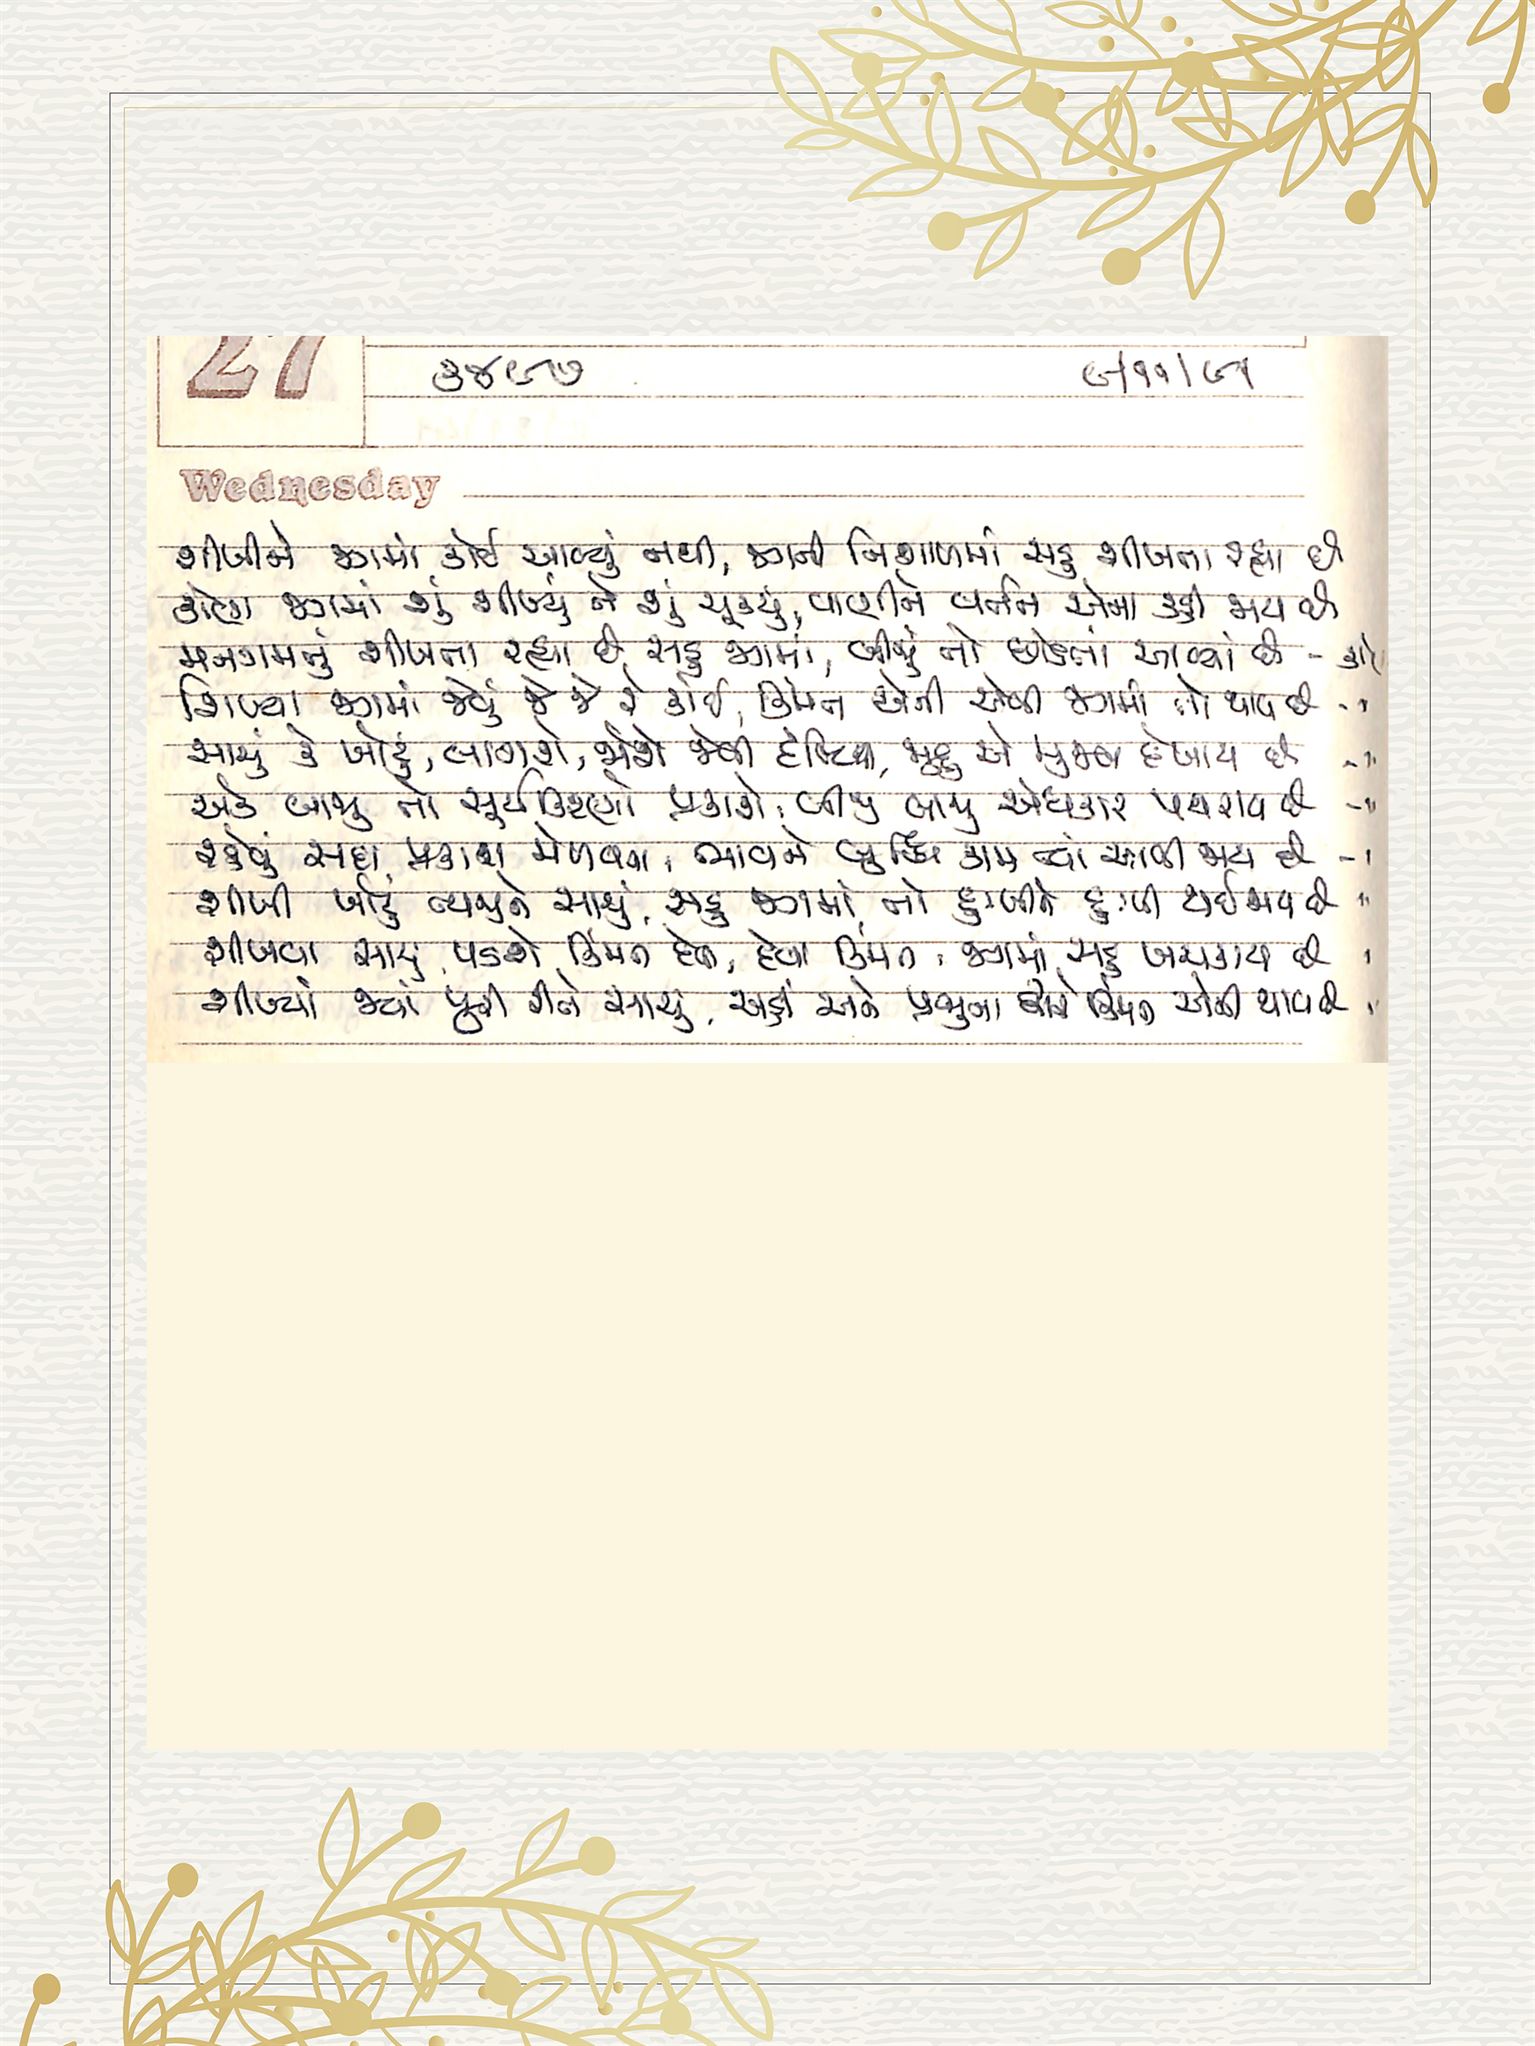 27
૩૪૯૭ ૯/૧૧/૯૧
Wednesday
શીખીને જગમાં કોઈ આવ્યું નથી, જગની નિશાળમાં સહુ શીખતા રહ્યા છે
કોણ જગમાં શું શીખ્યું ને શું ચૂક્યું, વાણીને વર્તન એના કહી જાય છે
મનગમતું શીખતા રહ્યા છે સહુ જગમાં, બીજું તો છોડતાં આવ્યાં છે - કોણ
શિખ્યા જગમાં જેવું જે જે રે કોઈ, કિંમત એની એવી જગમાં તો થાય છે - "
સાચું કે ખોટું, લાગશે, જોશે જેવી દૃષ્ટિએ, સહુ એ મુજબ દેખાય છે - "
એક બાજુ તો સૂર્યકિરણો પ્રકાશે, બીજી બાજુ અંધકાર પથરાય છે - "
રહેવું સદા પ્રકાશ મેળવતા, ભાવને બુદ્ધિ કામ ત્યાં આવી જાય છે - "
શીખી ખોટું ત્યજીને સાચું, સહુ જગમાં તો દુઃખીને દુઃખી થઈ જાય છે "
શીખવા સાચું પડશે કિંમત દેવી, દેવા કિંમત, જગમાં સહુ ખચકાય છે "
શીખ્યાં જ્યાં પૂરી રીતે સાચું, અહીં અને પ્રભુના દ્વારે કિંમત એની થાય છે "